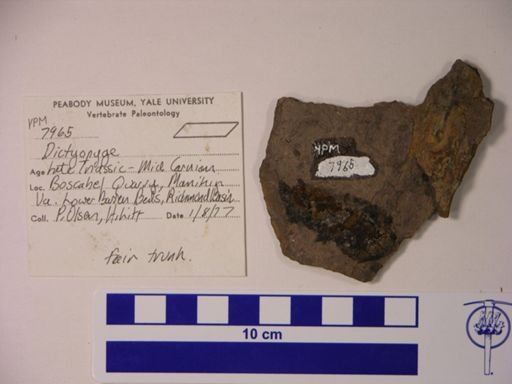 PEABODY MUSEUM, YALE UNIVERSITY
Vertebrate Paleontology
YPM
7965
Dictyopyge
Age Late Triassic - Mid Carnian
Loc. Boscabel Quarry, Manikin
Va. Lower Barren Beds, Richmond Basin
Coll. P. Olsen, Date 1/8/77
fair trunk.
YPM
7965
10 cm